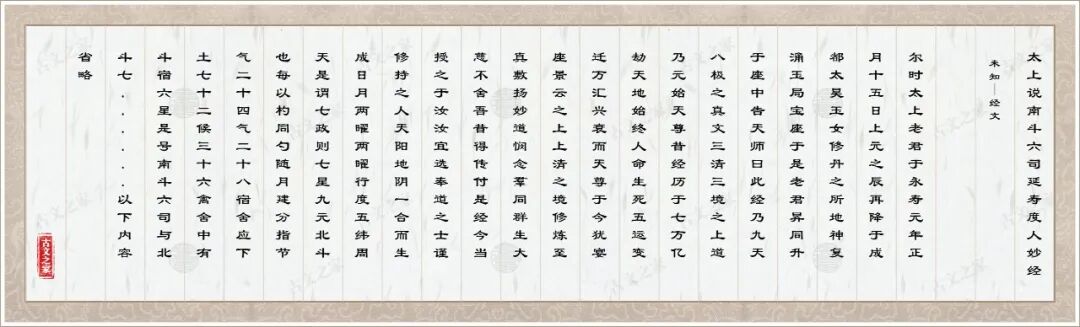 太上说南斗六司延寿度人妙经
未知—经文
尔时太上老君于永寿元年正
月十五日上元之辰再降于成
都太昊玉女修丹之所地神复
涌玉局宝座于是老君昇同升
于座中告天师曰此经乃九天
八极之真文三清三境之上道
乃元始天尊昔经历于七万亿
劫天地始终人命生死五运变
迁万汇兴衰而天尊于今犹宴
座景云之上上清之境修炼至
真敷扬妙道悯念羣同群生大
慈不舍吾昔得传付是经今当
授之于汝汝宜选奉道之士谨
修持之人天阳地阴一合而生
成日月两曜两曜行度五纬周
天是谓七政则七星九元北斗
也每以杓同勺随月建分指节
气二十四气二十八宿舍应下
土七十二候三十六禽舍中有
斗宿六星是号南斗六司与北
斗七......以下内容
省略
古文之家